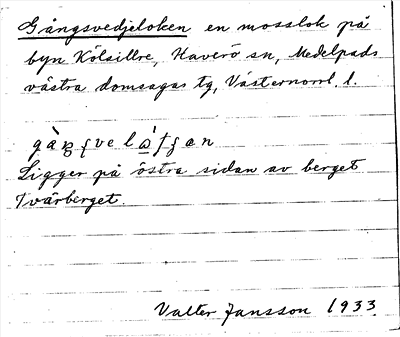 Gångsvedjeloken en mosslok på
byn Kölsillre, Haverö sn, Medelpads
västra domsagas tg, Västernorrl. l.
Ligger på östra sidan av berget
Tvärberget.
Valter Jansson 1933